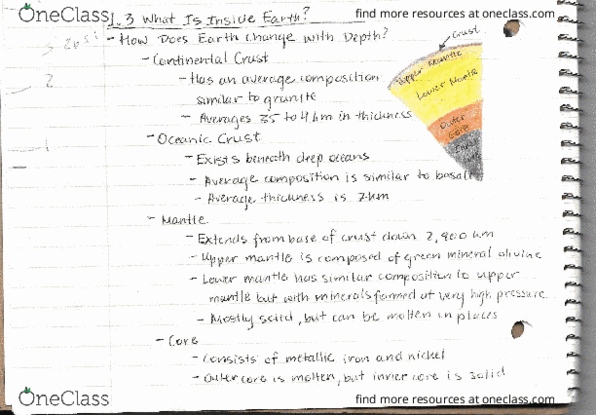 OneClass
find more resources at oneclass.com
1.3 What Is Inside Earth?
- How Does Earth Change with Depth?
- Continental Crust
- Has an average composition
similar to granite
- Averages 35 to 4 km in thickness
- Oceanic Crust
- Exists beneath deep oceans
- Average composition is similar to basalt
- Average thickness is 7 km
Crust
Upper Mantle
Lower Mantle
Outer
Core
Inner
- Mantle
- Extends from base of crust down 2,900 km
- Upper mantle is composed of green mineral olivine
- Lower mantle has similar composition to upper
mantle but with minerals formed at very high pressure
- Mostly solid, but can be molten in places
- Core
- Consists of metallic iron and nickel
- Outer core is molten, but inner core is solid
OneClass
find more resources at oneclass.com